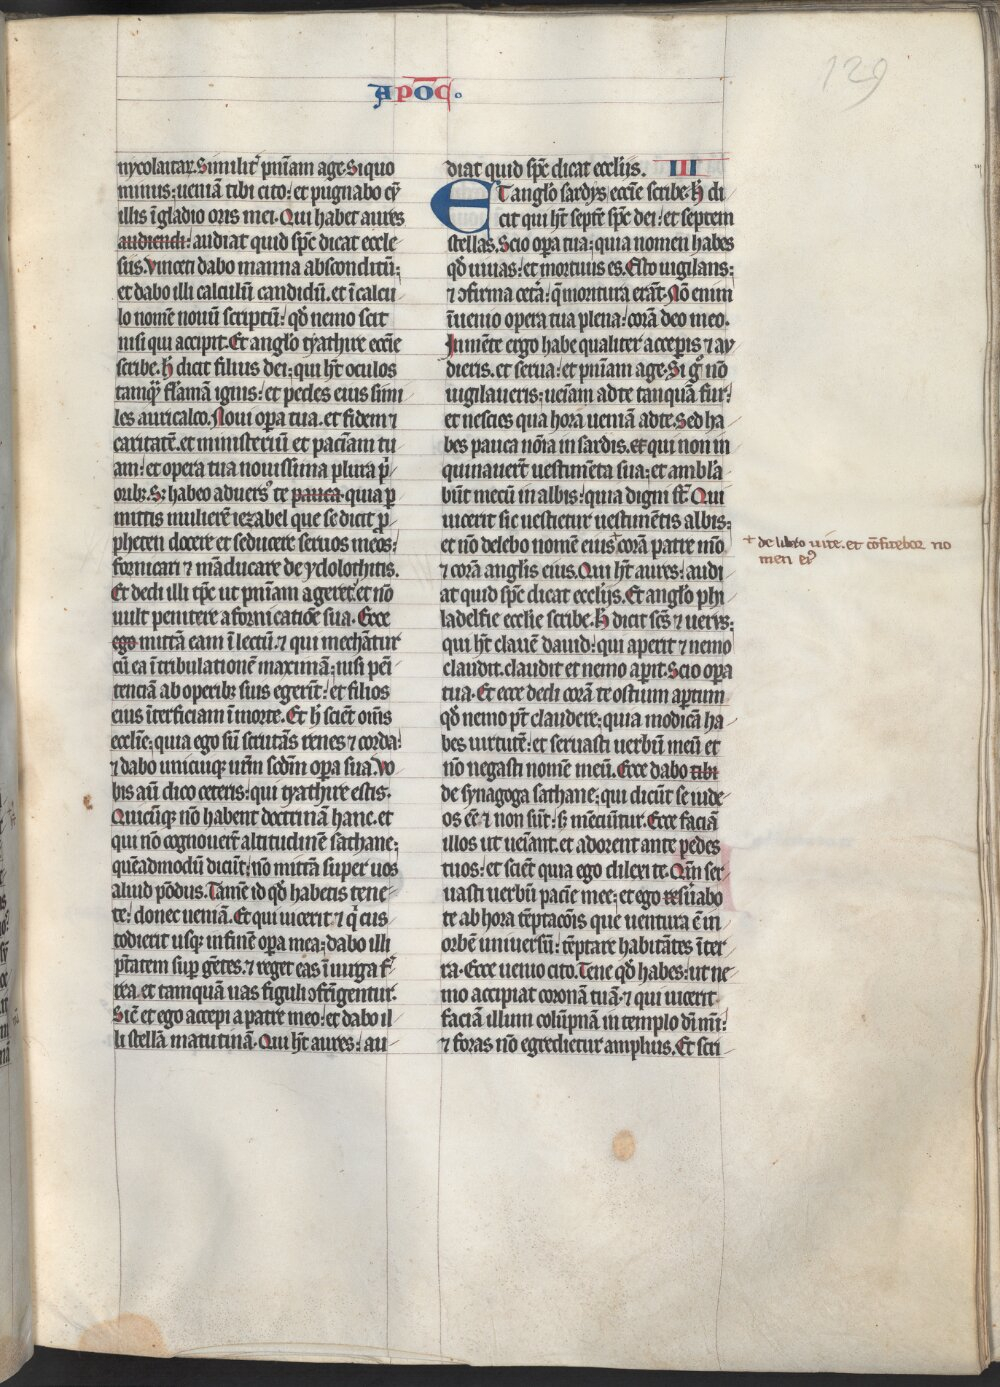 129
Apoc̄.
nycolaitaꝝ. Similit᷑ pn̄iam age. Si quo
minus: ueniā tibi cito: et pugnabo cū
illis ī gladio oris mei. Qui habet aures
audiendi: audiat quid sp̄c dicat eccle
siis. Vincēti dabo manna absconditū:
et dabo illi calculū candidū. et ī calcu
lo nomē nouū scriptū: qd̄ nemo scit
nisi qui accipit. Et angl̄o tyathire ecc̄ie
scribe. h̄ dicit filius dei: qui h̄t oculos
tamq̄ȝ flāmā ignis: et pedes eius simi
les auricalco. Noui op̄a tua. et fidem ⁊
caritatē. et ministeriū et paciā̄m tu
am: et opera tua nouissima plura p̄
oribꝫ. Sꝫ habeo aduersꝰ te pauca quia ꝑ
mittis mulierē iezabel que se dicit ꝓ
pheten docere et seducere seruos meos:
fornicari ⁊ māducare de ydolothitis.
Et dedi illi tp̄c ut pn̄iam ageret. et nō
uult penitere a fornicatiōe sua. Ecce
ego mittā eam ī lectū. ⁊ qui mechātur
cū ea ī tribulationē maximā: nisi peī
tenciā ab operibꝫ suis egerīt: et filios
eius īterficiam ī morte. Et h̄ sciēt om̄s
eccl̄ie: quia ego sū scrutās renes ⁊ corda:
⁊ dabo unicuiqꝫ ur̄m sc̄dm op̄a sua. Vo
bis aū dico ceteris: qui tyathire estis.
Quicūqꝫ nō habent doctrinā hanc. et
qui nō cognouerūt altitudinē sathane:
quēadmodū dicūt: nō mittā super uos
aliud pōdus. Tamē id qd̄ habetis tene
te: donec ueniā. Et qui uicerit ⁊ q̄ cus
todierit usqꝫ in finē op̄a mea: dabo illi
p̄tatem sup̄ gētes. ⁊ reget eas ī uirga f᷑
rea et tamquā uas figuli ↄfrīgentur.
Sic̄ et ego accepi a patre meo: et dabo il
li stellā matutinā. Qui h̄t aures: au
diat quid sp̄c dicat eccl̄ijs. III
Et angl̄o sardys ecc̄ie scribe. h̄ di
cit qui h̄t septē sp̄c dei: et septem
stellas. Scio op̄a tua: quia nomen habes
qd̄ uiuas: et mortuus es. Esto uigilans:
⁊ ↄfirma cet̄a: q̄ moritura erāt. Nō enim
īuenio opera tua plena: corā deo meo.
In mēte ergo habe qualiter acceperis ⁊ au
dieris. et serua: et pn̄iam age. Si gͦ nō
uigilaueris: ueīam ad te tanquā fur:
et nescies qua hora ueniā ad te. Sed ha
bes pauca nōia in sardis. et qui non in
quinauer̄t uestimēta sua: et ambl̄a
būt mecū in albis: quia digni st̄. Qui
uicerit sic uestietur uestimētis albis:
et nō delebo nomē eius + corā patre mō
+ de libro uite. et cōfitebor no
men eiꝰ
⁊ corā angl̄is eius. Qui h̄t aures: audi
at quid sp̄c dicat eccl̄ijs. Et angl̄o phi
ladelfie eccl̄ie scribe. h̄ dicit sc̄s ⁊ uerus:
qui h̄t clauē dauid: qui aperit ⁊ nemo
claudit. claudit et nemo ap̄it. Scio op̄a
tua. Et ecce dedi corā te ostium ap̄tum
qd̄ nemo pt̄ claudere: quia modicā ha
bes uirtutē: et seruasti uerbū meū et
nō negasti nomē meū. Ecce dabo tibi
de synagoga sathane: qui dicūt se iude
os eē ⁊ non sūt: s̄ mēciūtur. Ecce faciā
illos ut ueīant. et adorent ante pedes
tuos: et sciēt quia ego dilexi te. Qm̄ ser
uasti uerbū pacīe mee: et ego reseruabo
te ab hora tēptacōis que uentura ē in
orbē uniuersū: tēptare habitātes ī ter
ra. Ecce uenio cito. Tene qd̄ habes: ut ne
mo accipiat coronā tuā. ⁊ qui uicerit
faciā illum colūpnā in templo dī mī:
⁊ foras nō egredietur amplius. Et scri